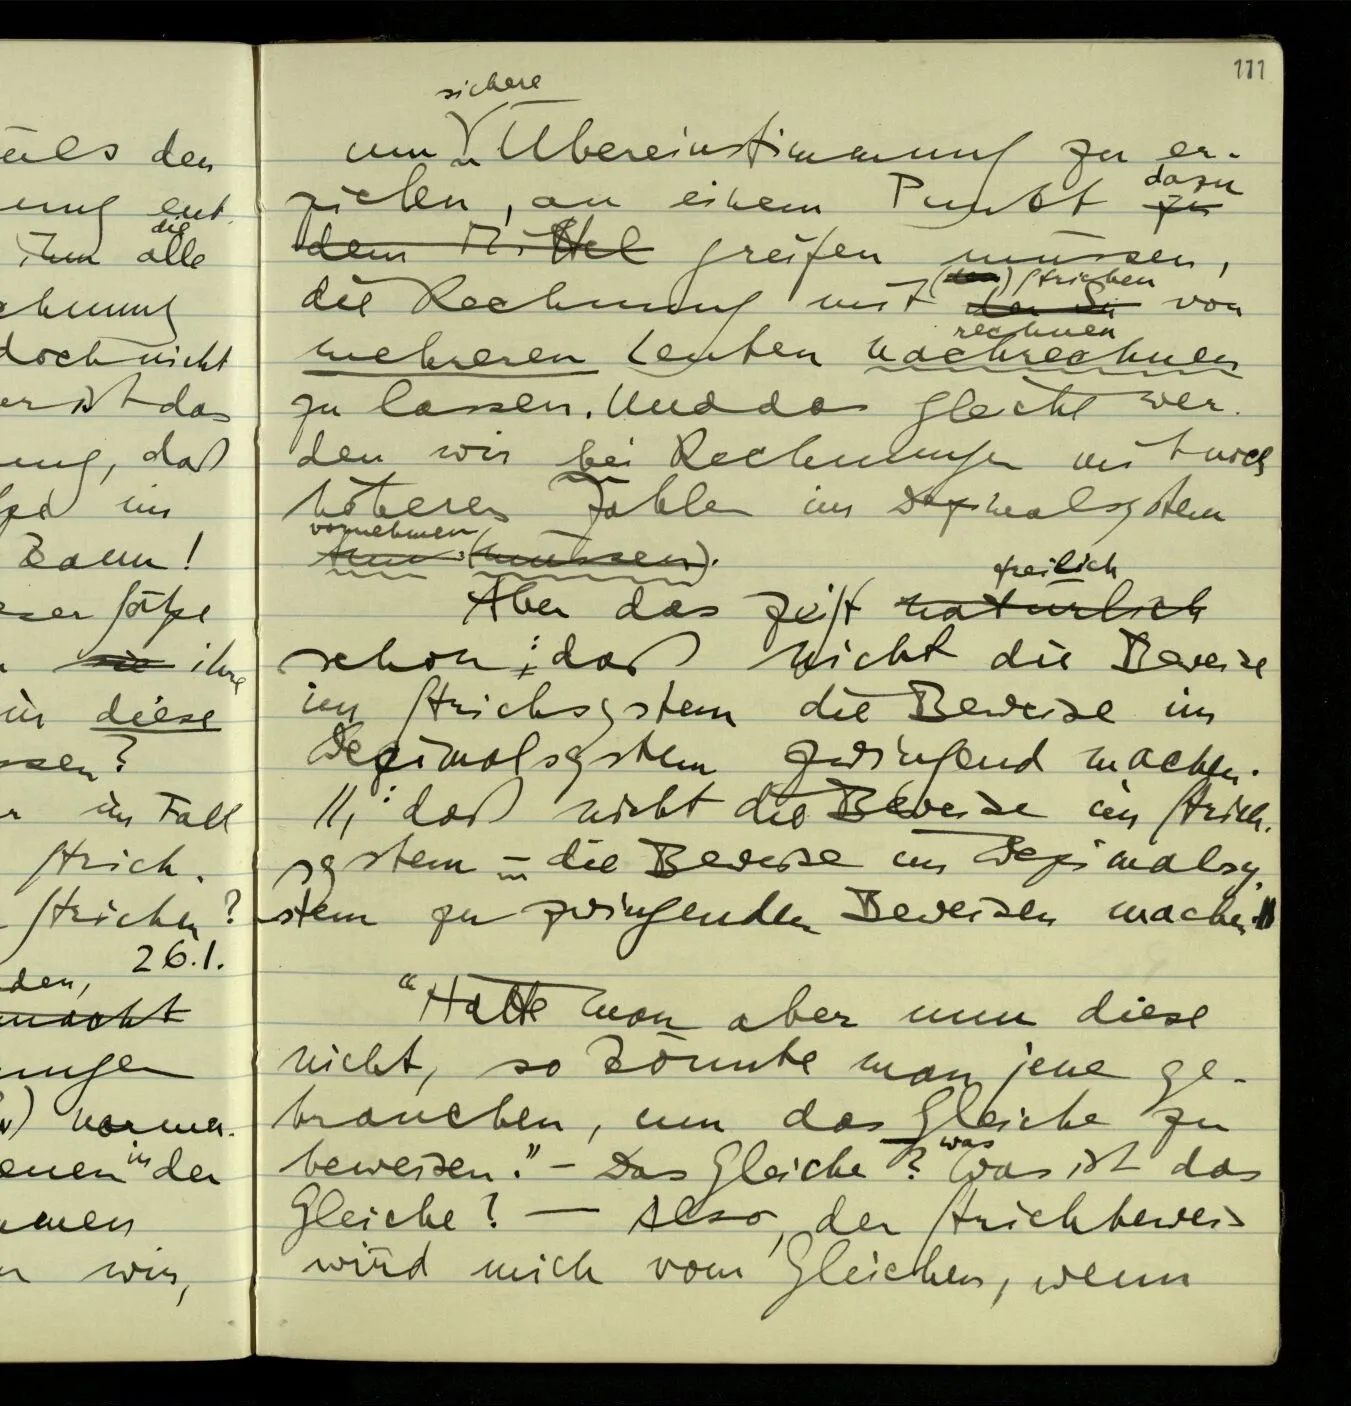 111
sichere
um Übereinstimmung zu er-
dazu
zielen, an einem Punkt zu
dem Mittel greifen müssen,
(den) Strichen
die Rechnung mit von
rechnen
mehreren Leuten nachrechnen
zu lassen. Und das gleiche wer-
den wir bei Rechnungen mit noch
höheren Zahlen im Dezimalsystem
vornehmen,
tun (müssen).
freilich
Aber das zeigt natürlich
schon: daß nicht die Beweise
im Strichsystem die Beweise im
Dezimalsystem zwingend machen.
//, : daß nicht die Beweise im Strich-
system – die Beweise im Dezimalsy-
stem zu zwingenden Beweisen machen.//
“Hätte man aber nun diese
nicht, so könnte man jene ge-
brauchen, um das Gleiche zu
was
beweisen.” – Das Gleiche? Was ist das
Gleiche? — Also, der Strichbeweis
wird mich vom Gleichen, wenn
den
ent-
die
ihm alle
doch nicht
er ist das
daß
im
Kann!
Sätze
sie ihre
für diese
im Fall
Strich-
Strichen?
26.1.
den,
macht
in
der
wir,